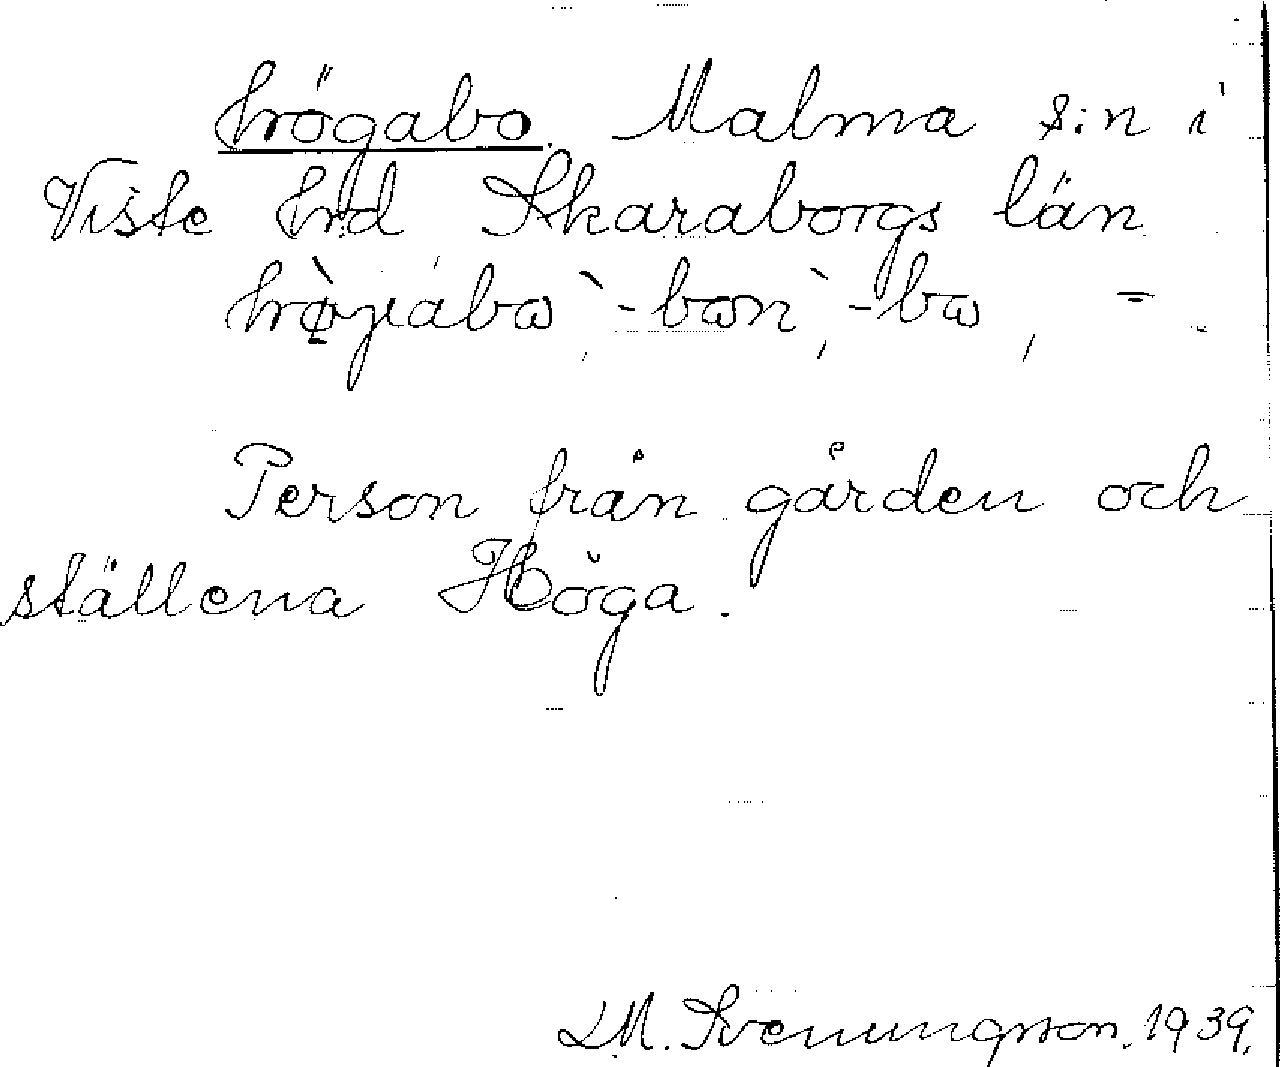 högabo. Malma s:n i
Viste hrd Skaraborgs län
Person från gården och
ställena Höga.
L.M. Svenungsson. 1939.